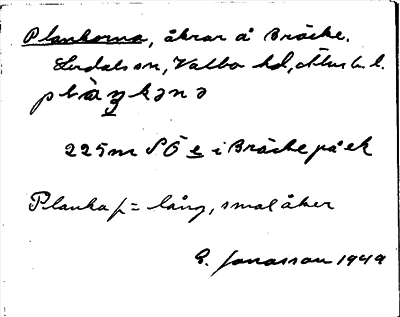 Plankorna, åkrar å Bräcke.
Lerdals sn, Valbo hd, Älvsb. l.
plàŋkənə
225 m SÖ e i Bräcke på ek
Planka f = lång, smal åker
E. Jonasson 1949